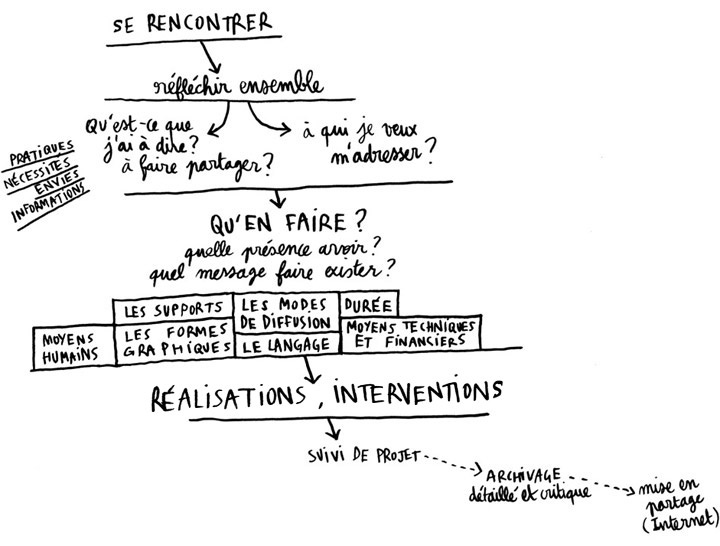 SE RENCONTRER
réfléchir ensemble
Qu'est-ce que
j'ai à dire?
à faire partager?
à qui je veux
m'adresser?
PRATIQUES
NÉCESSITÉS
ENVIES
INFORMATIONS
QU'EN FAIRE?
quelle présence avoir?
quel message faire exister?
LES SUPPORTS
LES MODES
DE DIFFUSION
DURÉE
MOYENS
HUMAINS
LES FORMES
GRAPHIQUES
LE LANGAGE
MOYENS TECHNIQUES
ET FINANCIERS
RÉALISATIONS, INTERVENTIONS
SUIVI DE PROJET
ARCHIVAGE
détaillé et critique
mise en
partage
(Internet)